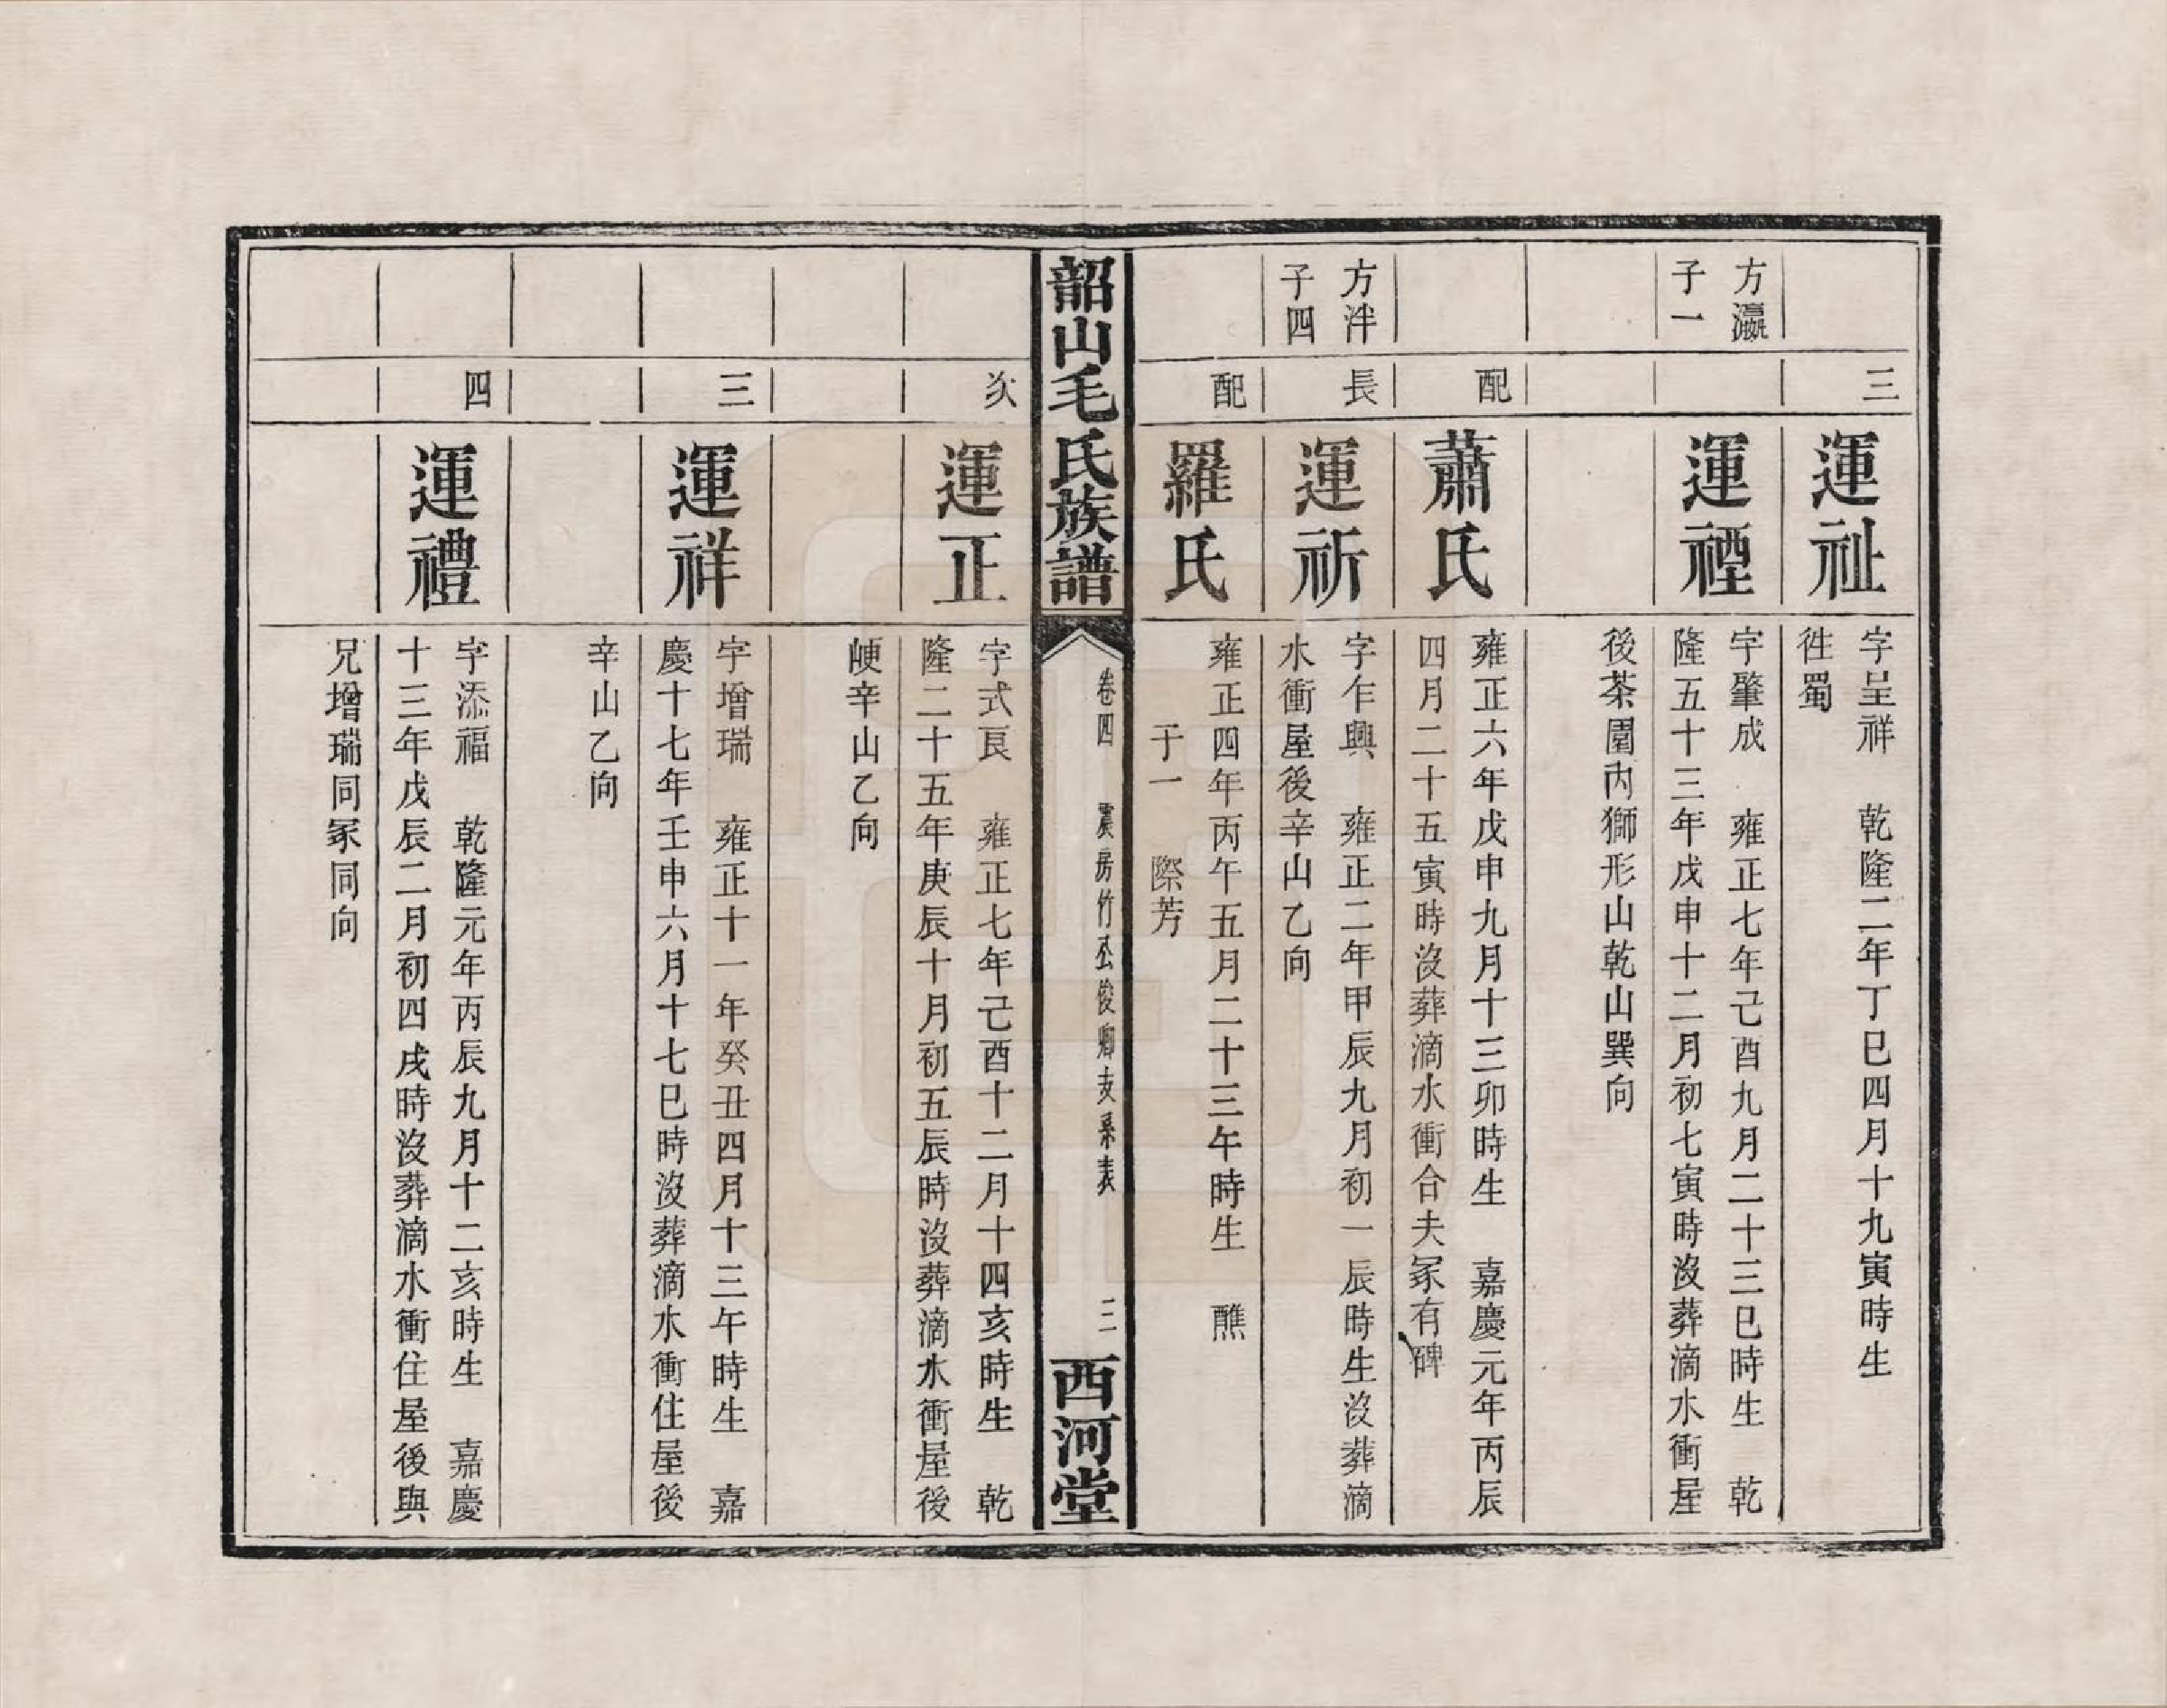 三
運祉
字呈祥　乾隆二年丁巳四月十九寅時生
徃蜀
方瀛
子一
運禋
字肇成　雍正七年己酉九月二十三巳時生　乾
隆五十三年戊申十二月初七寅時沒葬滴水衝屋
後茶園內獅形山乾山巽向
配
蕭氏
雍正六年戊申九月十三卯時生　嘉慶元年丙辰
四月二十五寅時沒葬滴水衝合夫冢有碑
方泮
子四
長
運祈
字乍興　雍正二年甲辰九月初一辰時生沒葬滴
水衝屋後辛山乙向
配
羅氏
雍正四年丙午五月二十三午時生　醮
子一　際芳
韶山毛氏族譜
卷四　震房竹丞俊卿支系表　三
西河堂
次
運正
字式良　雍正七年己酉十二月十四亥時生　乾
隆二十五年庚辰十月初五辰時沒葬滴水衝屋後
㟂辛山乙向
三
運祥
字增瑞　雍正十一年癸丑四月十三午時生　嘉
慶十七年壬申六月十七巳時沒葬滴水衝住屋後
辛山乙向
四
運禮
字添福　乾隆元年丙辰九月十二亥時生　嘉慶
十三年戊辰二月初四戌時沒葬滴水衝住屋後與
兄增瑞同冢同向